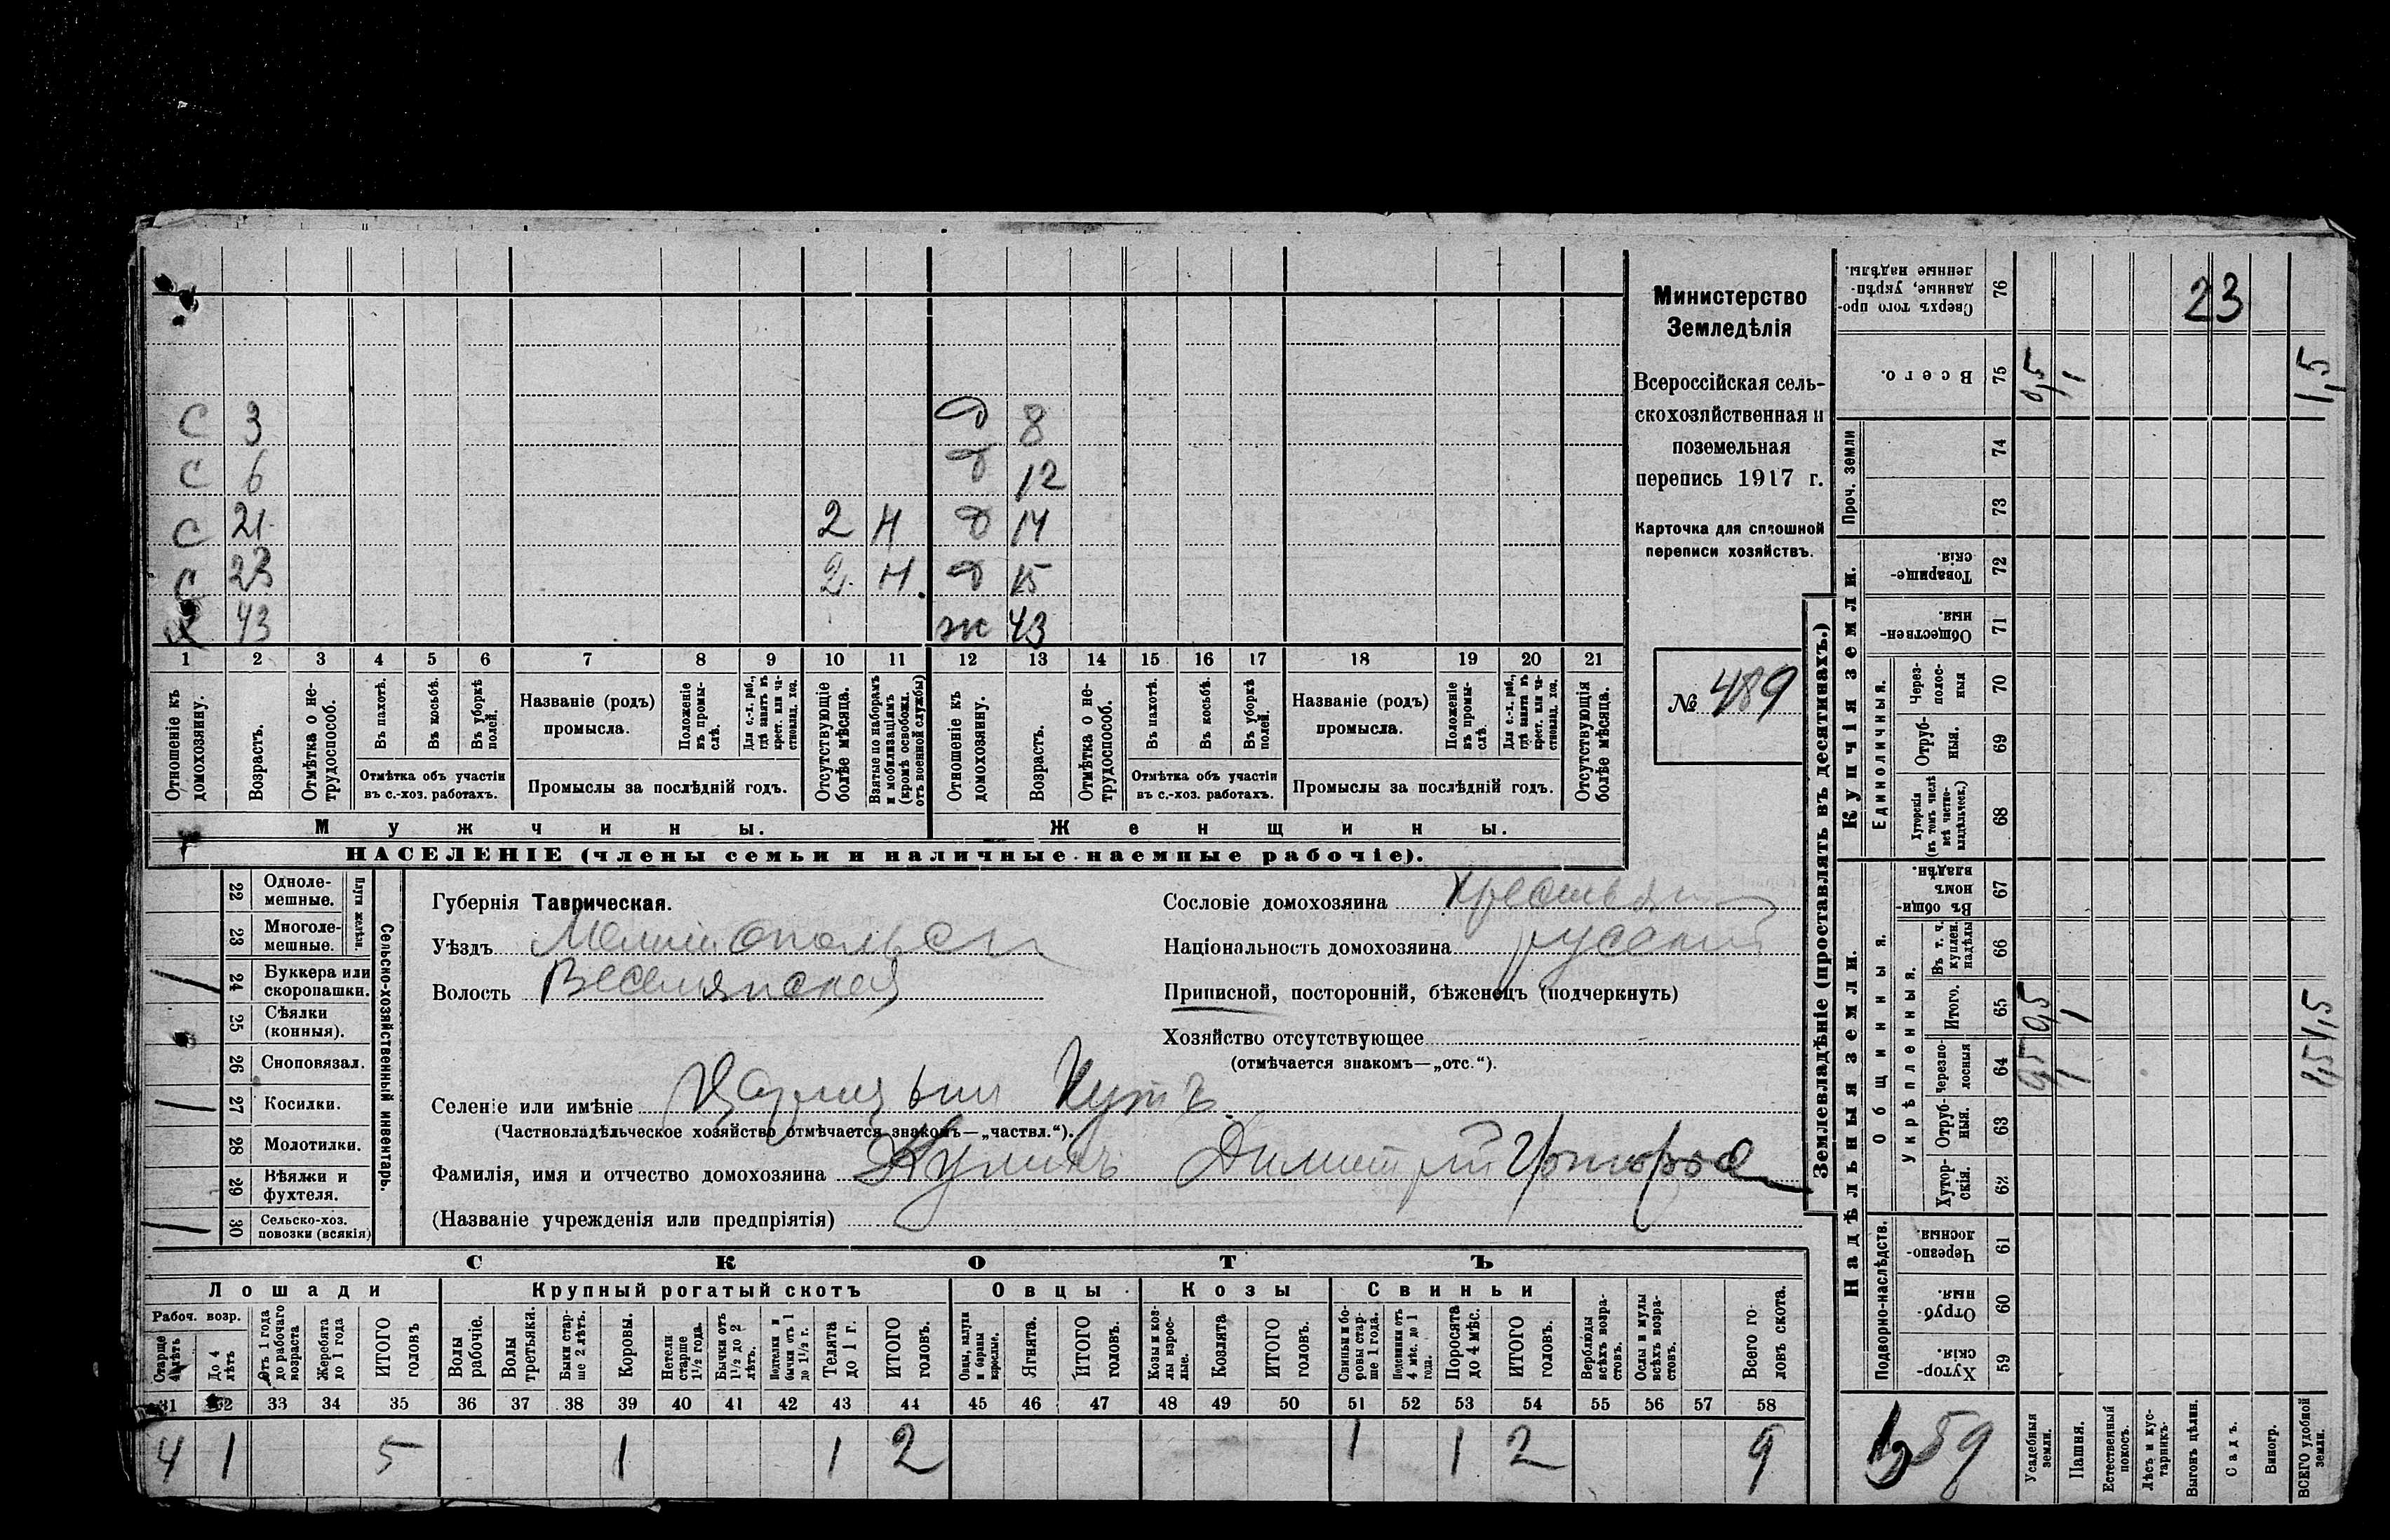 С 3 Д 8
С 6 Д 12
С 21 2 Н Д 14
С 23 2 Н Д 15
Х 43 ж 43
1 2 3 4 5 6 7 8 9 10 11 12 13 14 15 16 17 18 19 20 21
Отношеніе къ домохозяину.
Возрастъ.
Отмѣтка о не-трудоспособ.
Въ пахотѣ.
Въ косьбѣ.
Въ уборкѣ полей.
Отмѣтка объ участіи
въ с.-хоз. работахъ.
Названіе (родъ)
промысла.
Положеніе въ промы-слѣ.
Для с.-х. раб., гдѣ занятъ въ крест. или ча-стновлад. хоз.
Промыслы за послѣдній годъ.
Отсутствующіе болѣе мѣсяца.
Взятые по наборамъ и мобилизаціямъ (кромѣ освобожд. отъ военной службы)
Отношеніе къ домохозяину.
Возрастъ.
Отмѣтка о не-трудоспособ.
Въ пахотѣ.
Въ косьбѣ.
Въ уборкѣ полей.
Отмѣтка объ участіи
въ с.-хоз. работахъ.
Названіе (родъ)
промысла.
Положеніе въ промы-слѣ.
Для с.-х. раб., гдѣ занята въ крест. или ча-стновлад. хоз.
Промыслы за послѣдній годъ.
Отсутствующія болѣе мѣсяца.
Мужчины.
Женщины.
НАСЕЛЕНІЕ (члены семьи и наличные наемные рабочіе).
Министерство
Земледѣлія
Всероссійская сель-
скохозяйственная и
поземельная
перепись 1917 г.
Карточка для сплошной
переписи хозяйствъ.
№ 489
22 Одноле-мешные.
23 Многоле-мешные.
Плуги желѣзн.
24 Буккера или скоропашки.
25 Сѣялки (конныя).
26 Сноповязал.
27 Косилки.
28 Молотилки.
29 Вѣялки и фухтеля.
30 Сельско-хоз. повозки (всякія)
Сельско-хозяйственный инвентарь.
Губернія Таврическая.
Уѣздъ Мелитопольск
Волость Веселянская
Селеніе или имѣніе Царицынъ Кутъ
(Частновладѣльческое хозяйство отмѣчается знакомъ—„частвл.“).
Фамилія, имя и отчество домохозяина Димитрий
(Названіе учрежденія или предпріятія)
Сословіе домохозяина Крестьян
Національность домохозяина русский
Приписной, посторонній, бѣженецъ (подчеркнуть)
Хозяйство отсутствующее
(отмѣчается знакомъ—„отс.“).
СКОТЪ
Лошади
Крупный рогатый скотъ
Овцы
Козы
Свиньи
Рабоч. возр.
Старше 4 лѣтъ
До 4 лѣтъ
Отъ 1 года до рабочаго возраста
Жеребята до 1 года
ИТОГО головъ
Волы рабочіе.
Волы третьяки.
Быки стар-ше 2 лѣтъ.
Коровы.
Нетели старше 1½ года.
Бычки отъ 1½ до 2 лѣтъ.
Подтелки и бычки отъ 1 до 1½ г.
Телята до 1 г.
ИТОГО головъ.
Овцы, валухи и бараны взрослые.
Ягнята.
ИТОГО головъ.
Козы и коз-лы взрос-лые.
Козлята
ИТОГО головъ.
Свиньи и бо-ровы стар-ше 1 года.
Подсвинки отъ 4 мѣс. до 1 года.
Поросята до 4 мѣс.
ИТОГО головъ.
Верблюды всѣхъ возра-стовъ.
Ослы и мулы всѣхъ возра-стовъ.
Всего го-ловъ скота.
31 32 33 34 35 36 37 38 39 40 41 42 43 44 45 46 47 48 49 50 51 52 53 54 55 56 57 58
4 1 5 1 1 2 1 1 2 9
Землевладѣніе (проставлять въ десятинахъ.)
Надѣльныя земли.
Купчія земли.
Проч. земли
Подворно-наслѣдств.
Общинныя.
Укрѣпленныя.
Единоличныя.
59 Хутор-скія.
60 Отруб-ныя.
61 Черезпо-лосныя.
62 Хутор-скія.
63 Отруб-ныя.
64 Черезпо-лосныя 0,5 1 1,5
65 Итого. 0,5 1 1,5
66 Въ т. ч. куплен. надѣлы
67 Въ общи-номъ владѣн.
68 Хуторскія (въ томъ числѣ всѣ частно-владѣльческ.)
69 Отруб-ныя.
70 Через-полос-ныя
71 Обществен-ныя.
72 Товарище-скія.
73
74
75 Всего. 0,5 1 1,5
76 Сверхъ того про-данные, укрѣп-ленные надѣлы.
23
59
Усадебныя земли.
Пашня.
Естественный покосъ.
Лѣсъ и кус-тарникъ.
Выгонъ цѣлин.
Садъ.
Виногр.
ВСЕГО удобной земли.